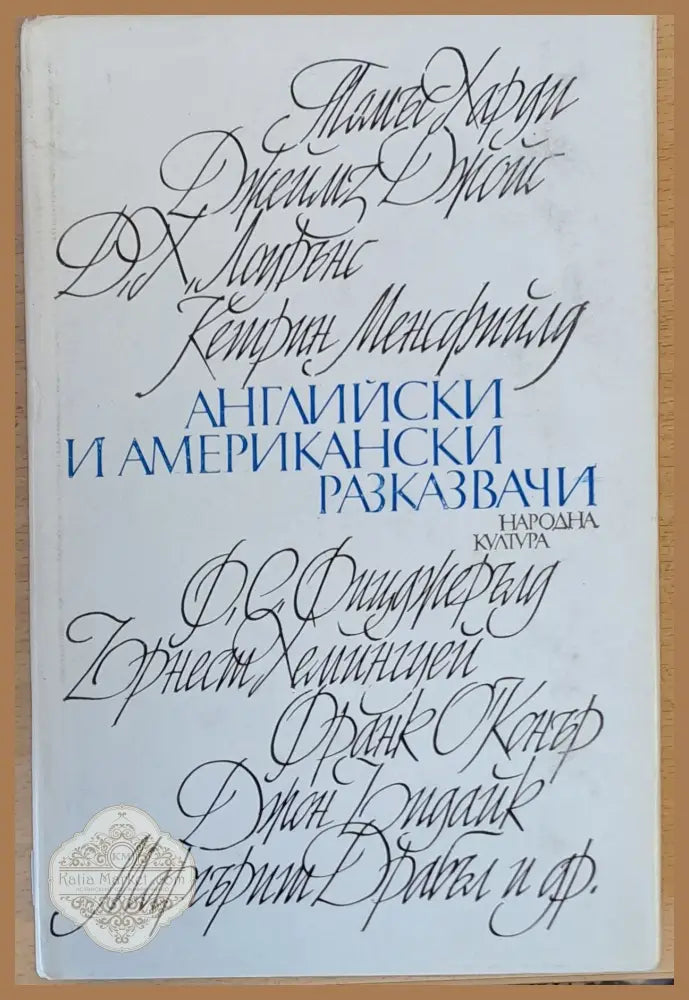 Томъс Харди
Джеймз Джойс
Д. Х. Лоурънс
Кетрин Менсфийлд
АНГЛИЙСКИ
И АМЕРИКАНСКИ
РАЗКАЗВАЧИ
НАРОДНА
КУЛТУРА
Ф. С. Фицджералд
Ърнест Хемингуей
Франк О'Конър
Джон Ъпдайк
Маргърит Драбъл и др.
KM
Katia Market.com